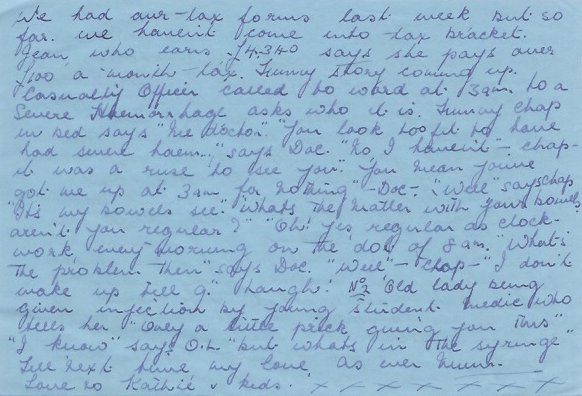 We had our tax forms last week but so
far we havent come into tax bracket.
Jean who earns £4.340 says she pays over
£100 a month tax. Funny story coming up.
Casualty Officer called to ward at 3am to a
Severe Haemorrhage asks who it is. Funny chap
in bed says "Me doctor". "You look too fit to have
had severe haem." says Doc. "No I haven't - chap -
it was a ruse to see you". "You mean youve
got me up at 3am for nothing - Doc - "Well" says chap
"Its my bowels see" "Whats the matter with your bowels
aren't you regular?" "Oh! Yes, regular as clock-
work every morning on the dot of 8am. "What's
the problem then" says Doc. "Well" - chap - "I don't
wake up till 9." Laugh! No 2 Old lady being
given injection by young student medic who
tells her "Only a little prick giving you this"
"I know" says O.L. "but whats in the syringe"
Till next time my love as ever Mum.
Love to Kathie & kids. x x x x x x x x